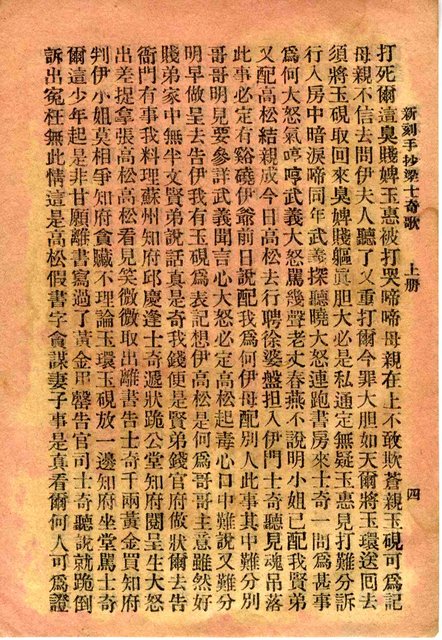 新刻手抄梁士奇歌　上册　四
打死爾這臭賤婢玉惠被打哭啼啼母親在上不敢欺蒼親玉硯可爲記
母親不信去問伊夫人聽了又重打爾今罪大胆如天爾將玉環送囘去
須將玉硯取回來臭婢賤軀眞胆大必是私通定無疑玉惠見打難分訴
行入房中暗淚啼同年武義探聽曉大怒連跑書房來士奇一問爲甚事
爲何大怒氣哼哼武義大怒罵幾聲老丈春燕不說明小姐已配我賢弟
又配高松結親成今日高松去行聘徐婆盤担入伊門士奇聽見魂吊落
此事必定有谿磽伊爺前日說配我爲何伊母配別人此事其中難分別
哥哥明見要參詳武義聞言心大怒必定高松起毒心口中難說又難分
明早做呈去告伊我有玉硯爲表記想伊高松是何爲哥哥主意雖然好
賤弟家中無半文賢弟說話真是奇我錢便是賢弟錢官府做狀爾去告
衙門有事我料理蘇州知府邱慶逢士奇遞狀跪公堂知府閱呈生大怒
出差捉拿張高松高松看見笑微微取出離書告士奇千兩黃金買知府
判伊小姐莫相爭知府貪贓不理論玉環玉硯放一邊知府坐堂罵士奇
爾這少年起是非甘願離書寫過了黃金甲罄告官司士奇聽說就跪倒
訴出冤枉無此情這是高松假書字貪謀妻子事是真看爾何人可爲證